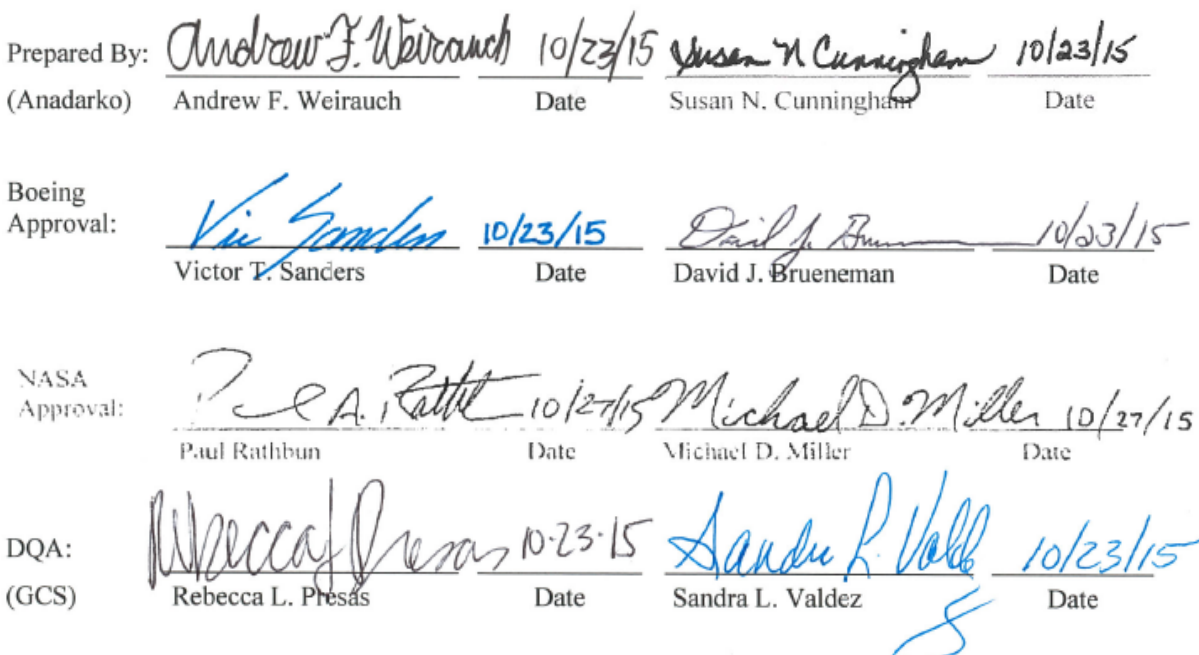 Prepared By: Andrew F. Weirauch 10/23/15 Susan N Cunningham 10/23/15
(Anadarko) Andrew F. Weirauch Date Susan N. Cunningham Date
Boeing
Approval: Vic Sanders 10/23/15 David J. 10/23/15
Victor T. Sanders Date David J. Brueneman Date
NASA
Approval: Paul A. 10/27/15 Michael D. Miller 10/27/15
Paul Rathbun Date Michael D. Miller Date
DQA: Rebecca Presas 10-23-15 Sandra L. 10/23/15
(GCS) Rebecca L. Presas Date Sandra L. Valdez Date